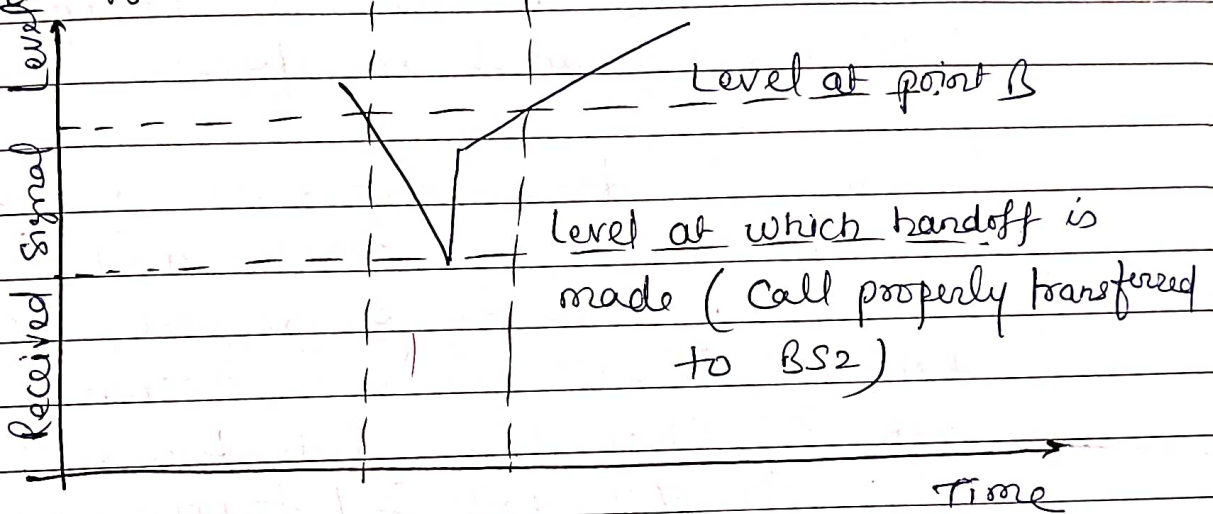 Received Signal Level
Level at point B
Level at which handoff is
made ( Call properly transferred
to BS2)
Time